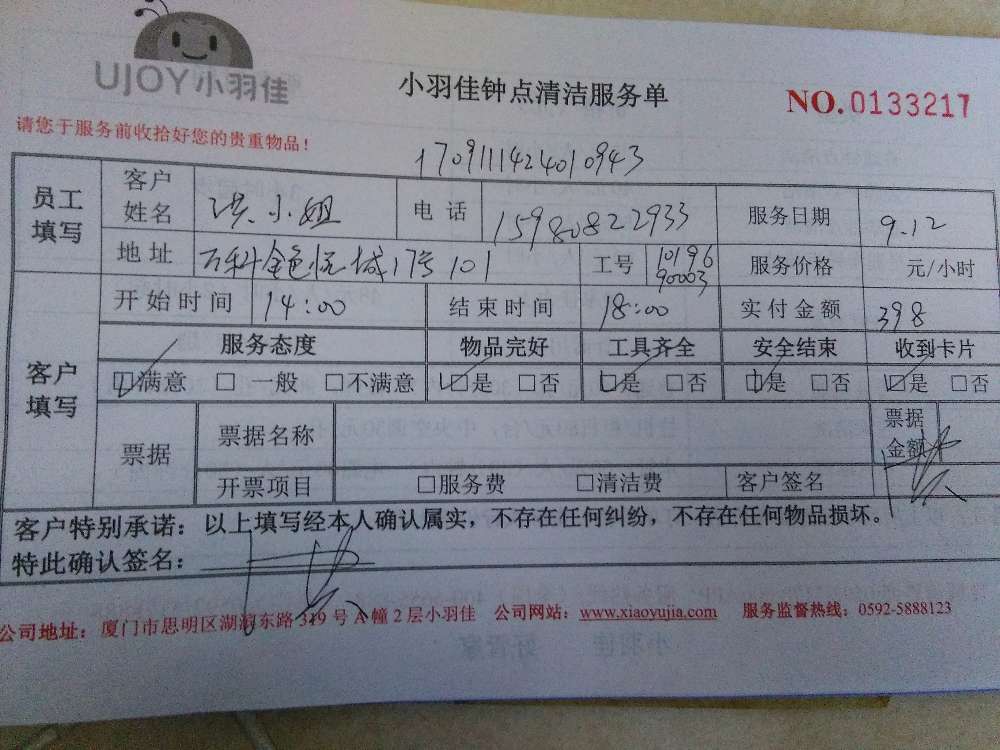 UJOY小羽佳
小羽佳钟点清洁服务单
NO.0133217
请您于服务前收拾好您的贵重物品！
1709111424010943
员工填写 客户姓名 洪小姐 电话 15980822933 服务日期 9.12
地址 万科金色悦城17号101 工号 10196 90003 服务价格 元/小时
客户填写 开始时间 14:00 结束时间 18:00 实付金额 398
服务态度 物品完好 工具齐全 安全结束 收到卡片
☑满意 □一般 □不满意 ☑是 □否 ☑是 □否 ☑是 □否 ☑是 □否
票据 票据名称 票据金额
开票项目 □服务费 □清洁费 客户签名
客户特别承诺：以上填写经本人确认属实，不存在任何纠纷，不存在任何物品损坏。
特此确认签名：
公司地址：厦门市思明区湖滨东路319号A幢2层小羽佳 公司网站：www.xiaoyujia.com 服务监督热线：0592-5888123